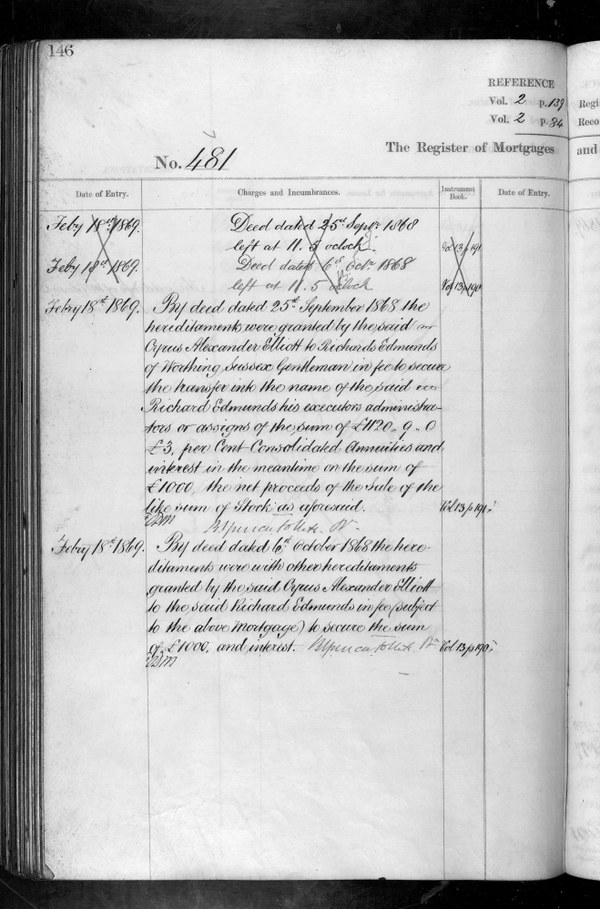 146
REFERENCE
Vol. 2 p. 139
Vol. 2 p. 84
Regi
Reco
No. 481
The Register of Mortgages
and
Date of Entry.
Charges and Incumbrances.
Instrument Book.
Date of Entry.
Feby 18th 1869.
Deed dated 25th Septr 1868
left at 11. 5 oclock
Vol 13 p 191
Feby 18th 1869.
Deed dated 6th Octr 1868
left at 11. 5 oclock
Vol 13 p 190
Febry 18th 1869.
By deed dated 25th September 1868 the
hereditaments were granted by the said
Cyrus Alexander Elliott to Richards Edmunds
of Worthing Sussex Gentleman in fee to secure
the transfer into the name of the said
Richard Edmunds his executors administra-
tors or assigns of the sum of £1120. 9. 0
£3. per Cent Consolidated Annuities and
interest in the meantime on the sum of
£1000, the net proceeds of the Sale of the
like sum of Stock as aforesaid.
Vol 13 p 191
Febry 18th 1869.
By deed dated 6th October 1868 the here-
ditaments were with other hereditaments
granted by the said Cyrus Alexander Elliott
to the said Richard Edmunds in fee (subject
to the above Mortgage) to secure the sum
of £1000, and interest.
Vol 13 p 190